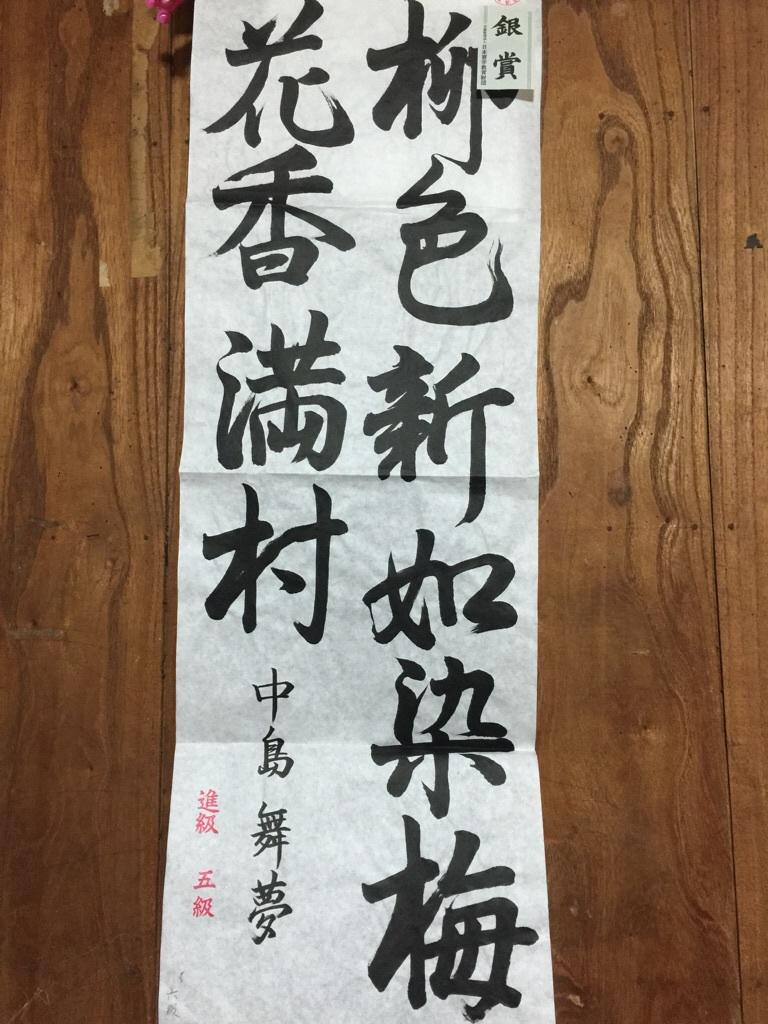 銀賞
柳色新如染梅
花香満村
中島舞夢
進級 五級